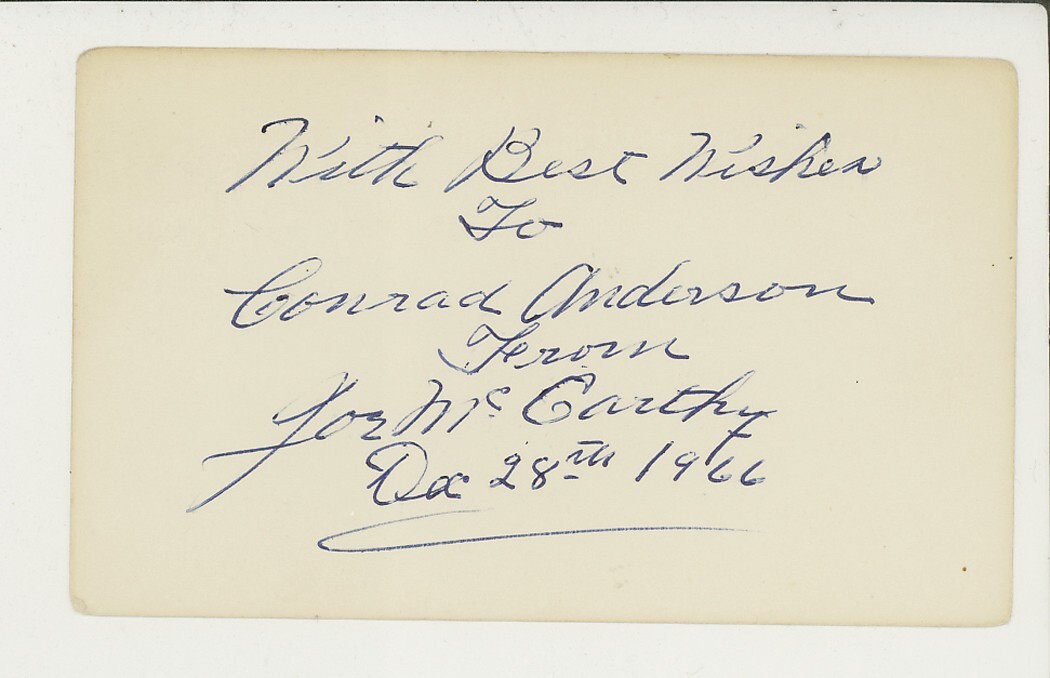 With Best Wishes
To
Conrad Anderson
From
Joe Mc Carthy
Dec 28th 1966